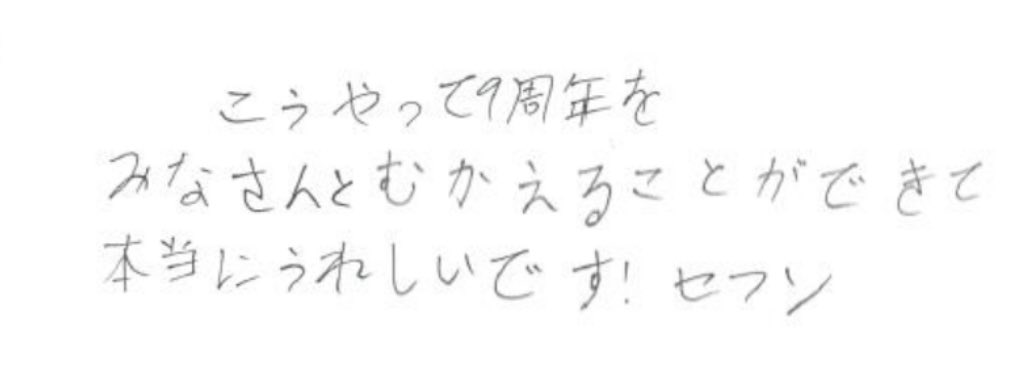 こうやって9周年を
みなさんとむかえることができて
本当にうれしいです! セフン